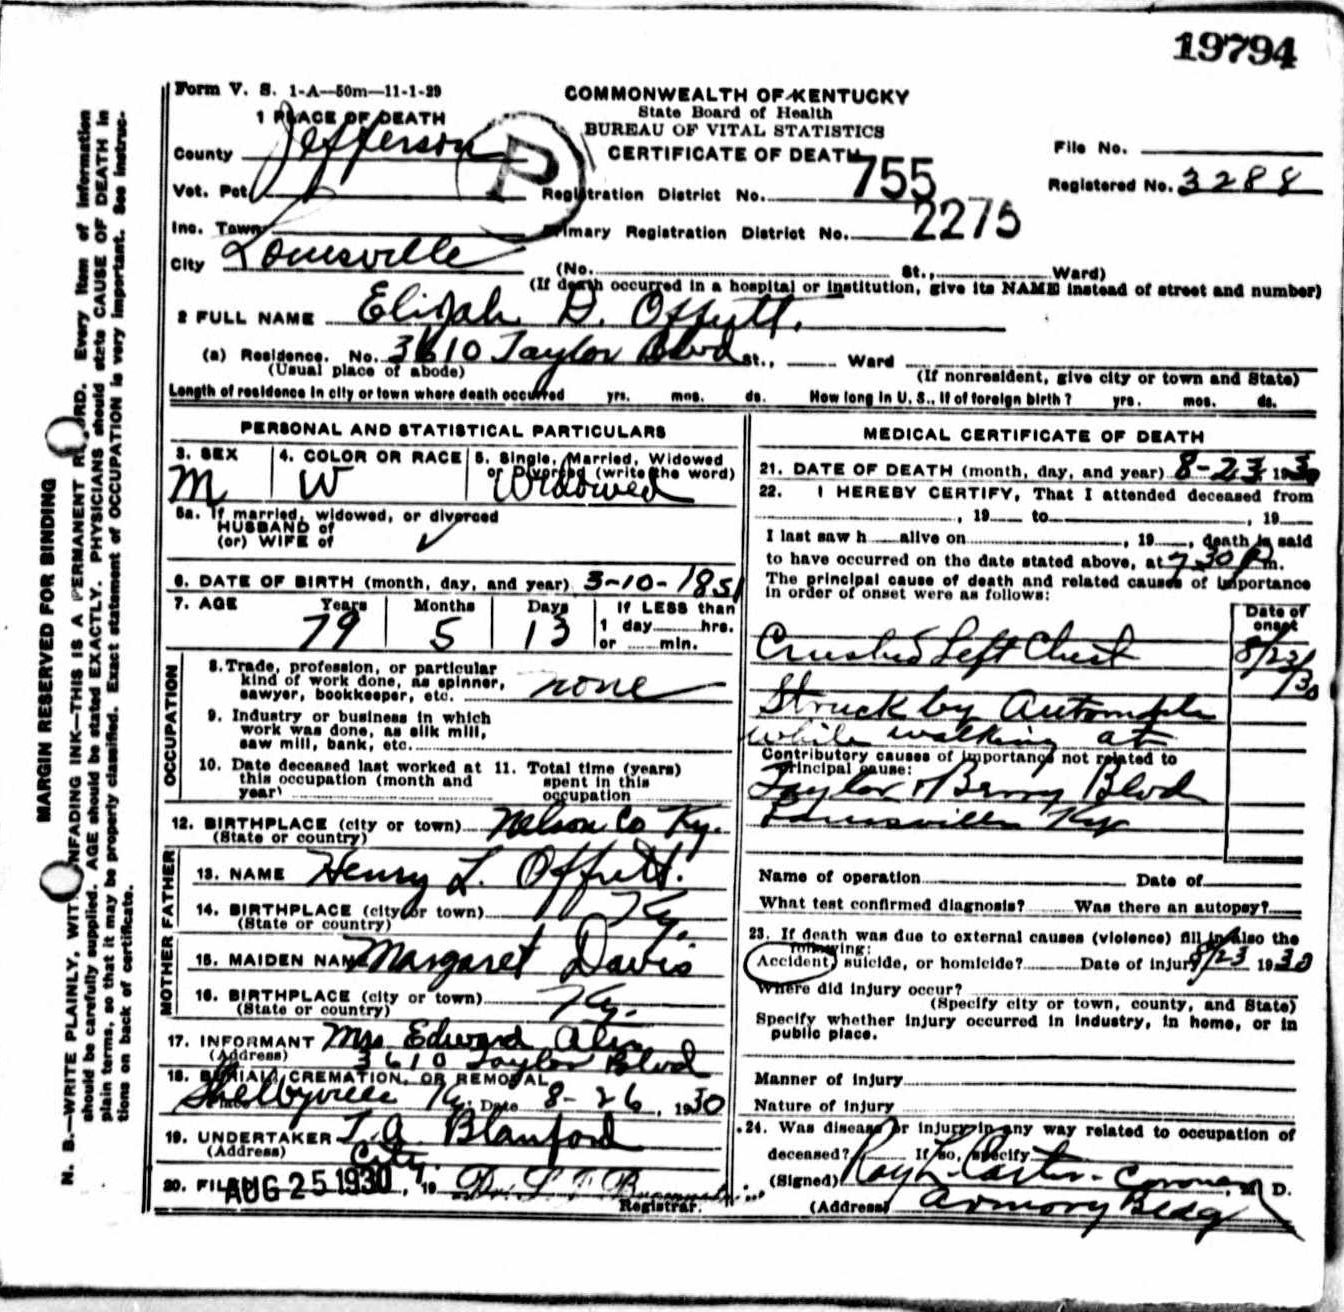 19794
Form V. S. 1-A—50m—11-1-29
COMMONWEALTH OF KENTUCKY
State Board of Health
BUREAU OF VITAL STATISTICS
CERTIFICATE OF DEATH
1 PLACE OF DEATH
County Jefferson
P
Vot. Pct.
Inc. Town
City Louisville
File No.
Registered No. 3288
Registration District No. 755
Primary Registration District No. 2275
(No. St., Ward)
(If death occurred in a hospital or institution, give its NAME instead of street and number)
2 FULL NAME Elijah D. Offutt.
(a) Residence. No. 3610 Taylor Blvd St., Ward
(Usual place of abode)
(If nonresident, give city or town and State)
Length of residence in city or town where death occurred yrs. mos. ds. How long in U. S., if of foreign birth? yrs. mos. ds.
PERSONAL AND STATISTICAL PARTICULARS
3. SEX M
4. COLOR OR RACE W
5. Single, Married, Widowed or Divorced (write the word) Widowed
5a. If married, widowed, or divorced
HUSBAND of
(or) WIFE of
6. DATE OF BIRTH (month, day, and year) 3-10-1851
7. AGE Years 79 Months 5 Days 13 If LESS than 1 day hrs. or min.
OCCUPATION
8. Trade, profession, or particular kind of work done, as spinner, sawyer, bookkeeper, etc. none
9. Industry or business in which work was done, as silk mill, saw mill, bank, etc.
10. Date deceased last worked at this occupation (month and year)
11. Total time (years) spent in this occupation
12. BIRTHPLACE (city or town) Nelson Co Ky.
(State or country)
FATHER
13. NAME Henry L. Offutt.
14. BIRTHPLACE (city or town) Ky.
(State or country)
MOTHER
15. MAIDEN NAME Margaret Davis
16. BIRTHPLACE (city or town) Ky.
(State or country)
17. INFORMANT Mrs Edward
(Address) 3610 Taylor Blvd
18. BURIAL, CREMATION, OR REMOVAL
Place Shelbyville Ky. Date 8-26, 1930
19. UNDERTAKER T. A Blanford
(Address) City.
20. FILED AUG 25 1930, 19 Dr. L
Registrar.
MEDICAL CERTIFICATE OF DEATH
21. DATE OF DEATH (month, day, and year) 8-23 1930
22. I HEREBY CERTIFY, That I attended deceased from
, 19 to , 19
I last saw h alive on , 19 , death is said
to have occurred on the date stated above, at 7 30 P m.
The principal cause of death and related causes of importance
in order of onset were as follows:
Date of onset
Crushed Left Chest 8/23/30
Struck by Automobile
while walking at
Contributory causes of importance not related to
principal cause:
Taylor & Berry Blvd
Louisville Ky
Name of operation Date of
What test confirmed diagnosis? Was there an autopsy?
23. If death was due to external causes (violence) fill in also the
following:
Accident, suicide, or homicide? Date of injury 8/23 1930
Where did injury occur?
(Specify city or town, county, and State)
Specify whether injury occurred in industry, in home, or in
public place.
Manner of injury
Nature of injury
24. Was disease or injury in any way related to occupation of
deceased? If so, specify
(Signed) Roy L. Carter - Coroner, M D.
(Address) Armory Bldg
MARGIN RESERVED FOR BINDING
N. B.—WRITE PLAINLY, WITH UNFADING INK—THIS IS A PERMANENT RECORD. Every item of information
should be carefully supplied. AGE should be stated EXACTLY. PHYSICIANS should state CAUSE OF DEATH in
plain terms, so that it may be properly classified. Exact statement of OCCUPATION is very important. See instruc-
tions on back of certificate.